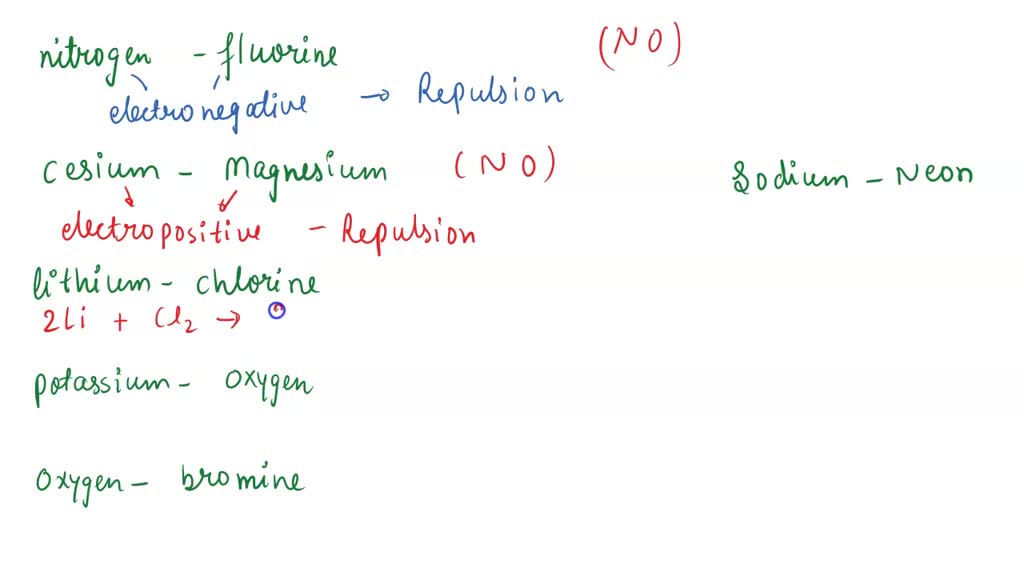 nitrogen - fluorine (NO)
electronegative → Repulsion
Cesium - Magnesium (NO)
Sodium - Neon
electropositive - Repulsion
lithium - chlorine
2Li + Cl2 →
potassium - oxygen
oxygen - bromine